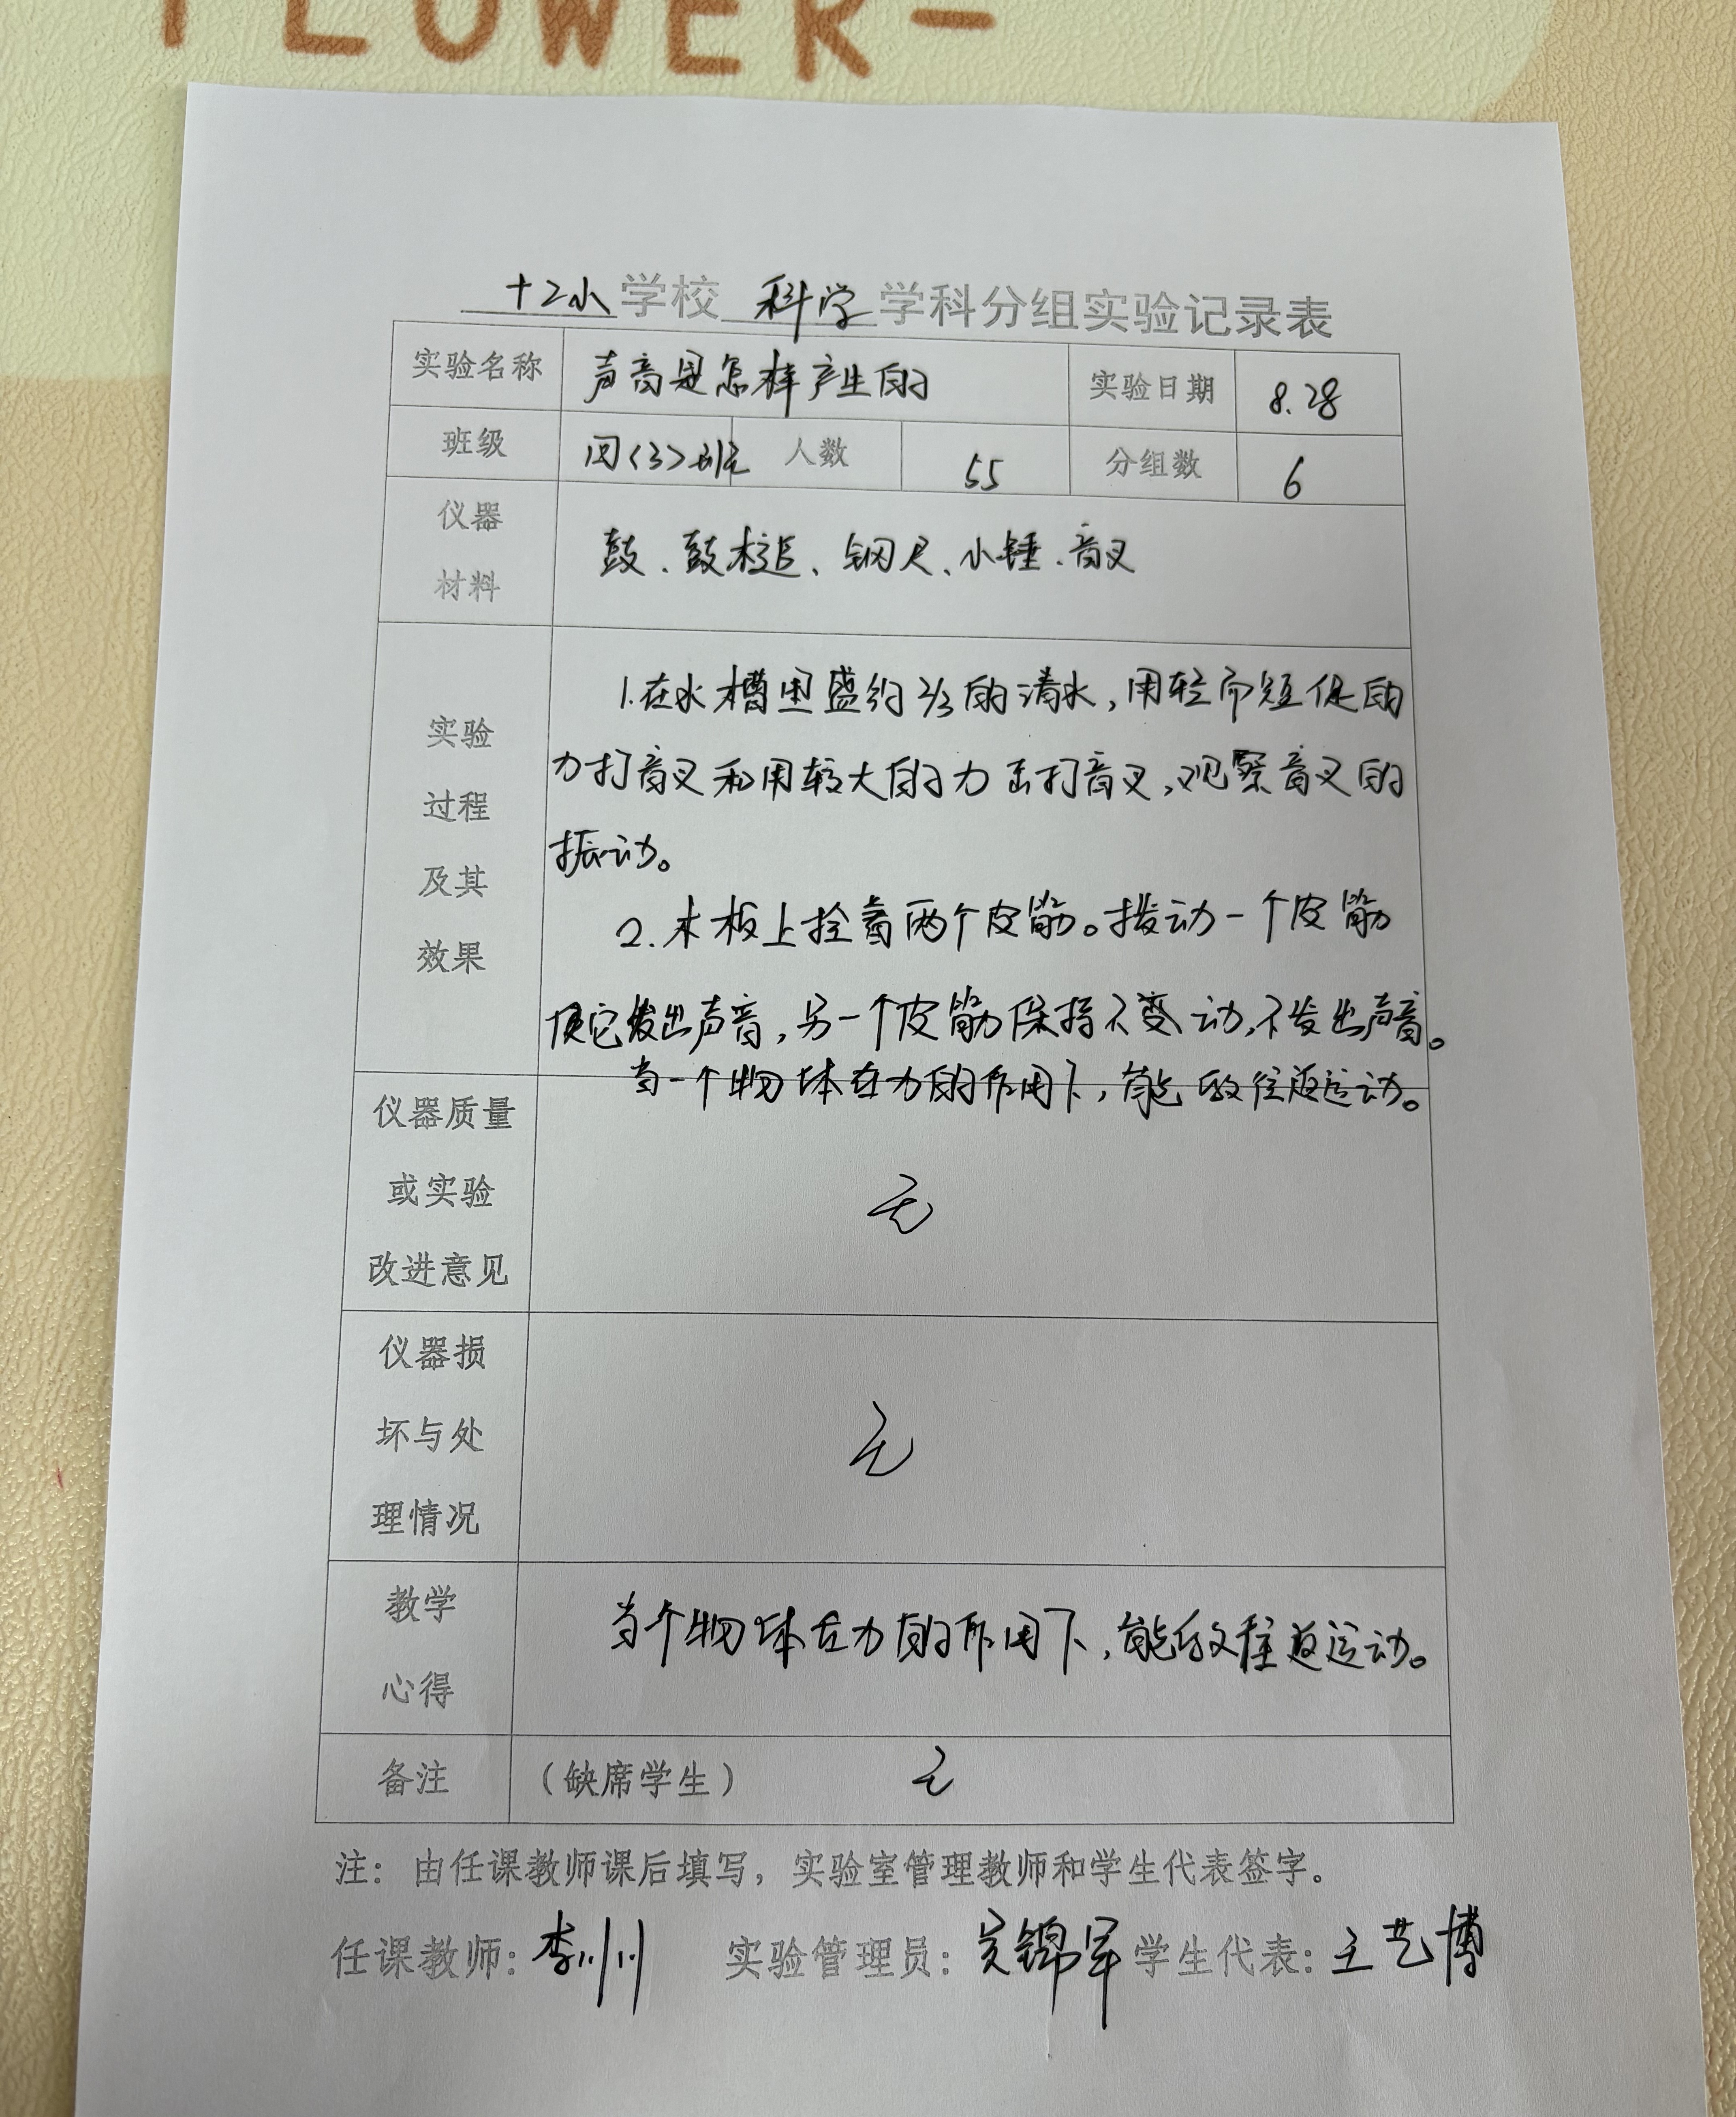 FLOWER-
十2小学校 科学 学科分组实验记录表
实验名称 声音是怎样产生的 实验日期 8.28
班级 四<3>班 人数 55 分组数 6
仪器材料 鼓、鼓槌、钢尺、小锤、音叉
实验过程及其效果
1.在水槽里盛约2/3的清水,用轻而短促的
力打音叉和用较大的力击打音叉,观察音叉的
振动。
2.木板上拴着两个皮筋。拨动一个皮筋
使它发出声音,另一个皮筋保持不变动,不发出声音。
当一个物体在力的作用下,能做往返运动。
仪器质量或实验改进意见 无
仪器损坏与处理情况 无
教学心得 当个物体在力的作用下,能做往返运动。
备注 (缺席学生) 无
注:由任课教师课后填写,实验室管理教师和学生代表签字。
任课教师:李川川 实验管理员:吴锦军 学生代表:王艺博